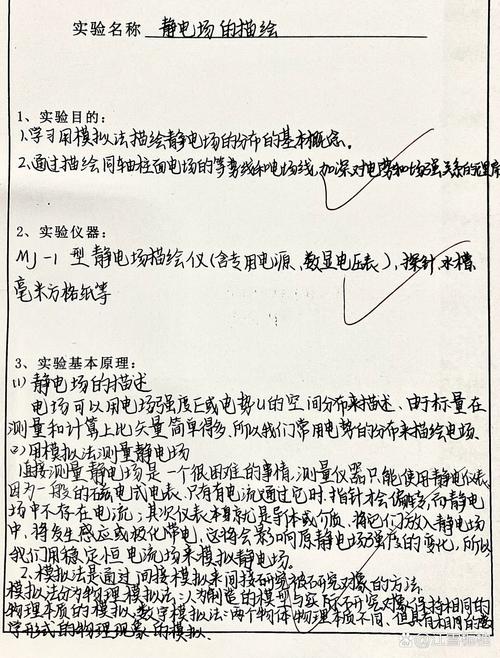 实验名称 静电场的描绘
1、实验目的:
1.学习用模拟法描绘静电场的分布的基本概念。
2.通过描绘同轴柱面电场的等势线和电场线,加深对电势和场强关系的理解
2、实验仪器:
MJ-1型静电场描绘仪(含专用电源、数显电压表),探针、水槽、
毫米方格纸等
3、实验基本原理:
(1)静电场的描述
电场可以用电场强度E或电势U的空间分布来描述、由于标量在
测量和计算上比矢量简单得多,所以我们常用电势的分布来描绘电场.
(2)用模拟法测量静电场
1.直接测量静电场是一个很困难的事情,测量仪器只能使用静电仪表,
因为一般的磁电式电表、只有有电流通过它时,指针才会偏转,而静电
场中不存在电流;其次仪表本身就是导体或介质、将它们放入静电场
中,将发生感应或极化带电、这将会影响原静电场强度的变化,所以
我们用稳定恒电流场来模拟静电场。
2.模拟法是通过间接模拟来间接研究被研究对象的方法
模拟法分为物理模拟法:认为制造的模型与实际研究对象保持相同的
物理本质的模拟、数学模拟法:两个物体物理本质不同、但具有相同的数
学形式的物理现象的模拟.